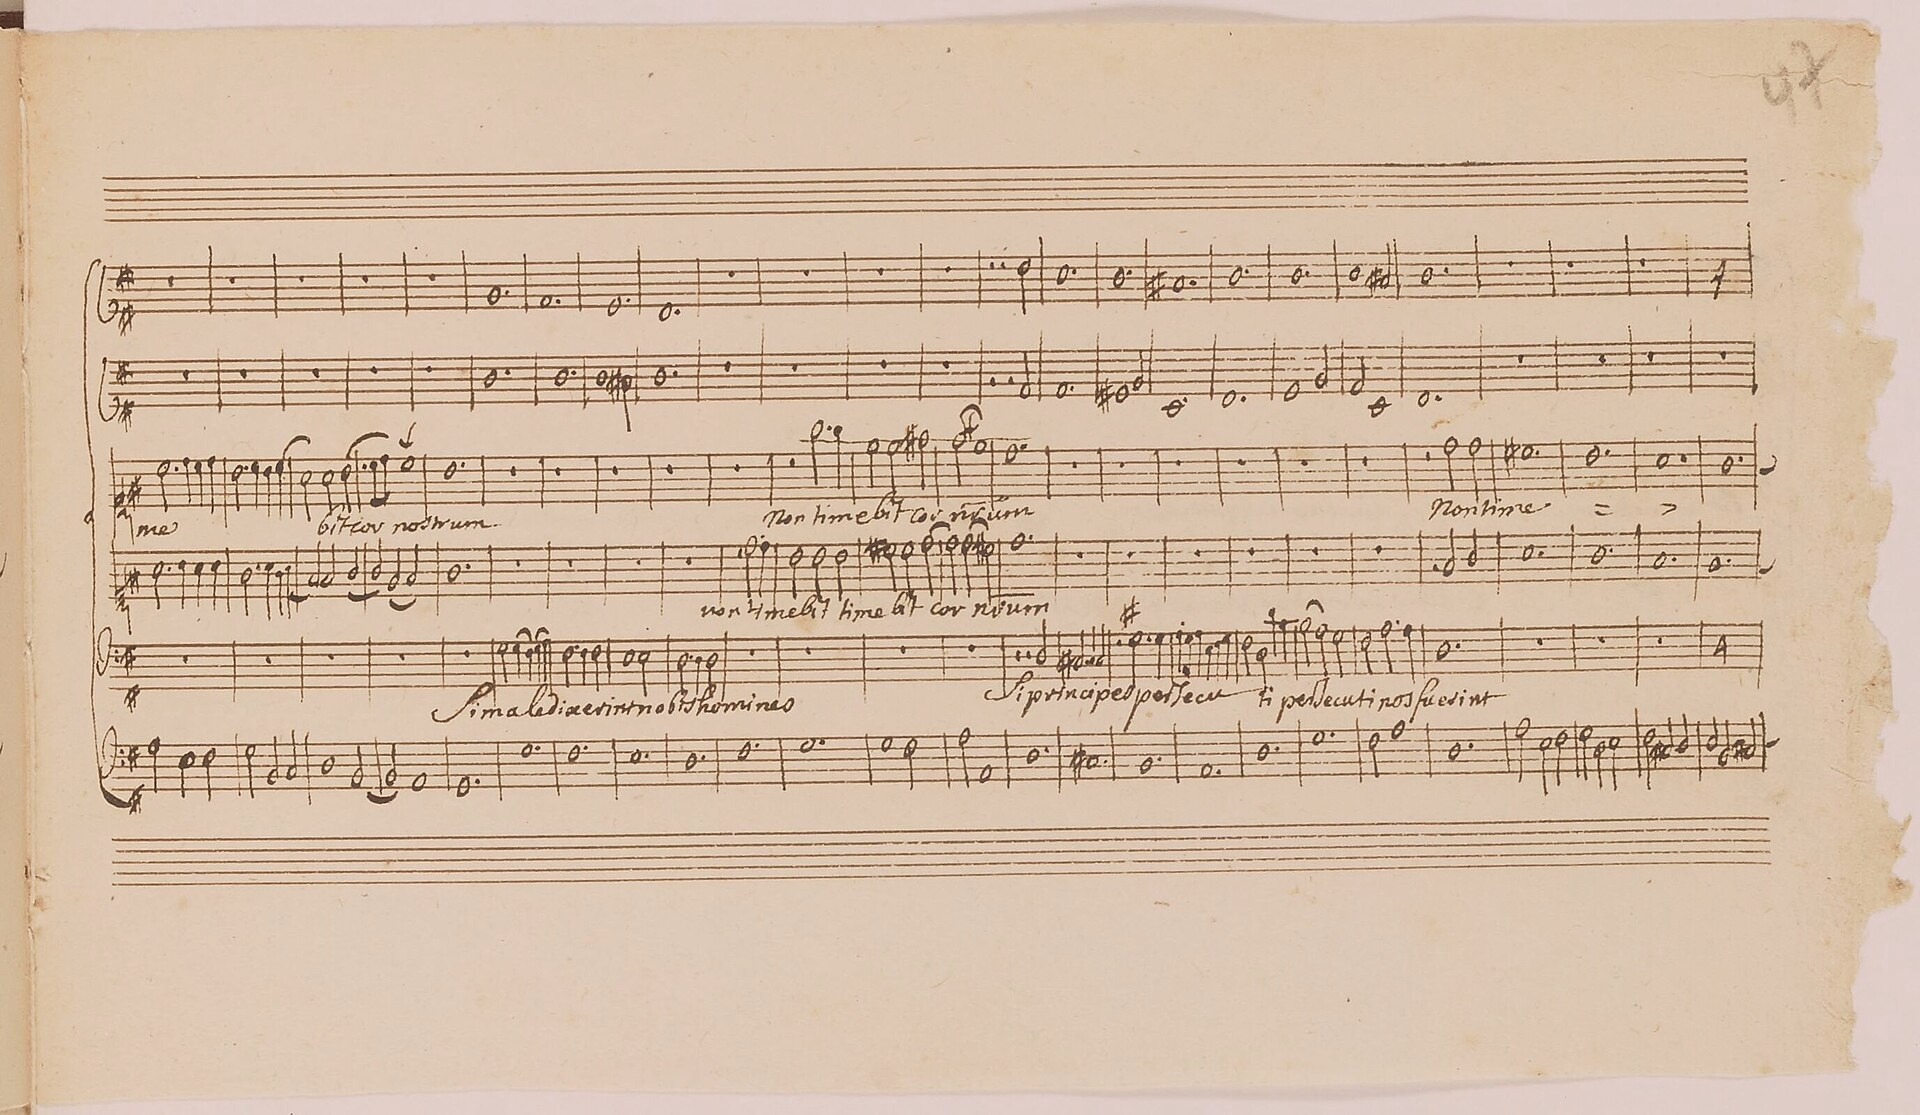 47
me bit cor nostrum Non timebit cor nrum Non time = =
non timebit timebit cor nrum
Si maledixerint nobis homines Si principes persecuti persecuti nos fuerint